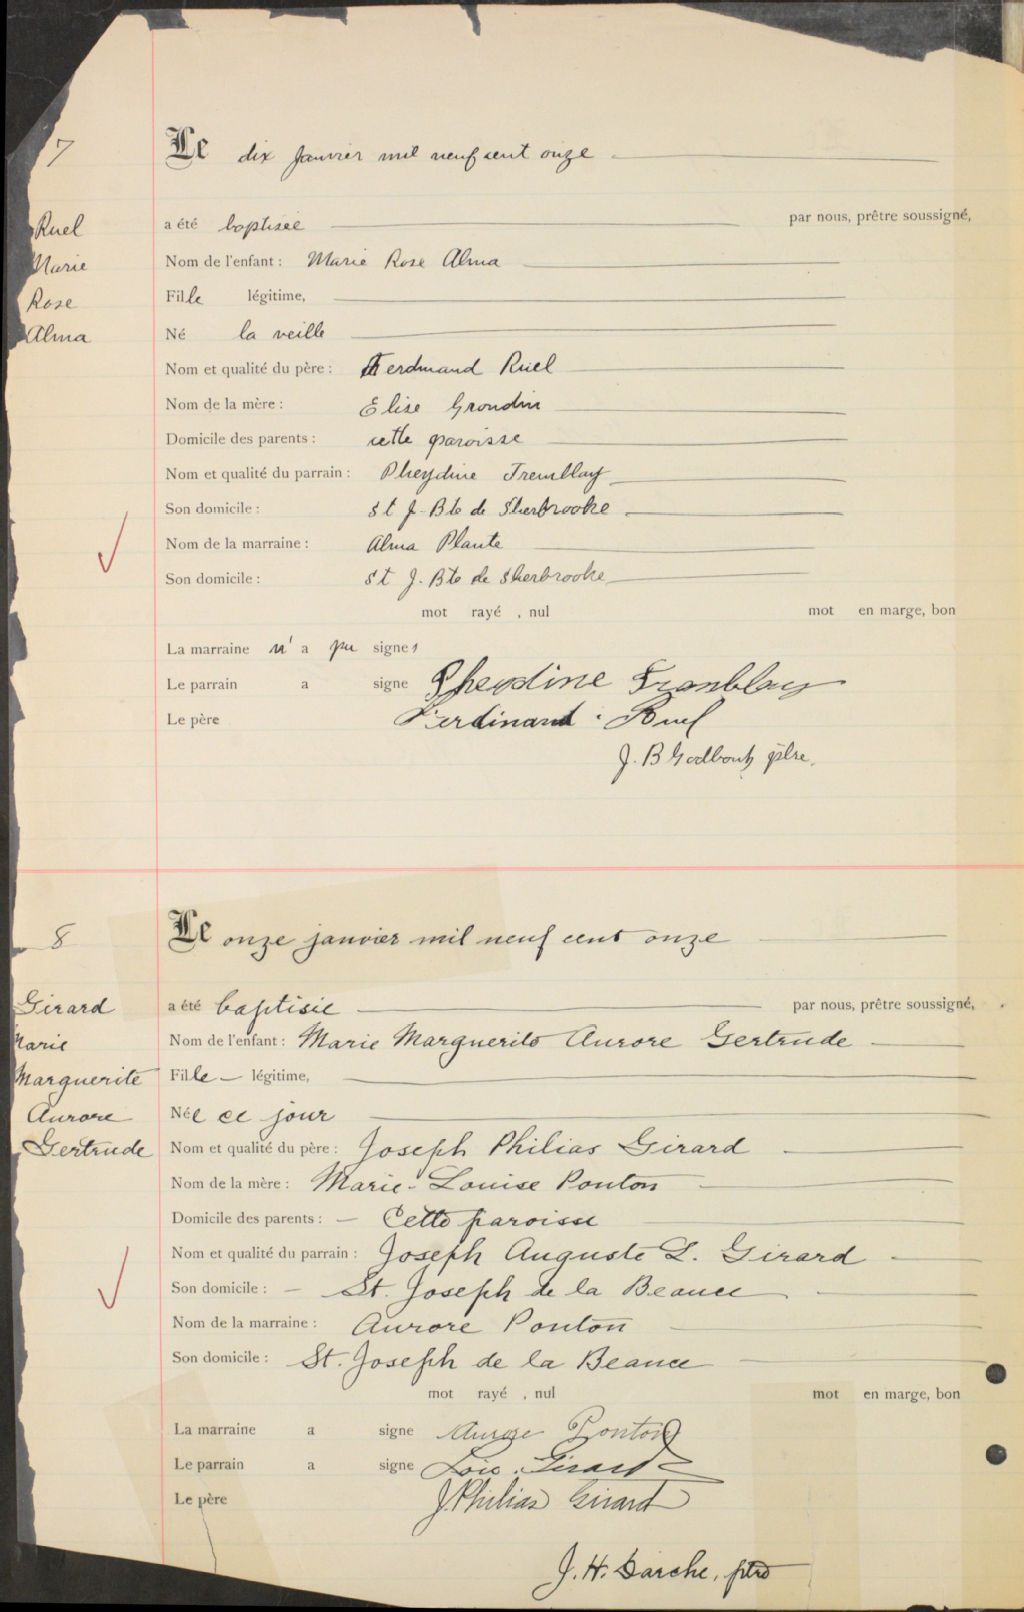 7
Le dix janvier mil neuf cent onze
Ruel
a été baptisée par nous, prêtre soussigné,
Marie
Nom de l'enfant : Marie Rose Alma
Rose
Fille légitime,
Alma
Né la veille
Nom et qualité du père : Ferdinand Ruel
Nom de la mère : Elise Grondin
Domicile des parents : cette paroisse
Nom et qualité du parrain : Pheydime Tremblay
Son domicile : St J-Bte de Sherbrooke
Nom de la marraine : Alma Plante
Son domicile : St J. Bte de Sherbrooke
mot rayé , nul mot en marge, bon
La marraine n'a pu signer
Le parrain a signe Pheydime Tremblay
Le père Ferdinand Ruel
J. B Godbout ptre.
8
Le onze janvier mil neuf cent onze
Girard
a été baptisée par nous, prêtre soussigné,
Marie
Nom de l'enfant : Marie Marguerite Aurore Gertrude
Marguerite
Fille légitime,
Aurore
Née ce jour
Gertrude
Nom et qualité du père : Joseph Philias Girard
Nom de la mère : Marie-Louise Ponton
Domicile des parents : – Cette paroisse
Nom et qualité du parrain : Joseph Auguste L. Girard
Son domicile : – St. Joseph de la Beauce
Nom de la marraine : Aurore Ponton
Son domicile : St. Joseph de la Beauce
mot rayé , nul mot en marge, bon
La marraine a signe Aurore Ponton
Le parrain a signe Girard
Le père J. Philias Girard
J. H. Darche, ptre